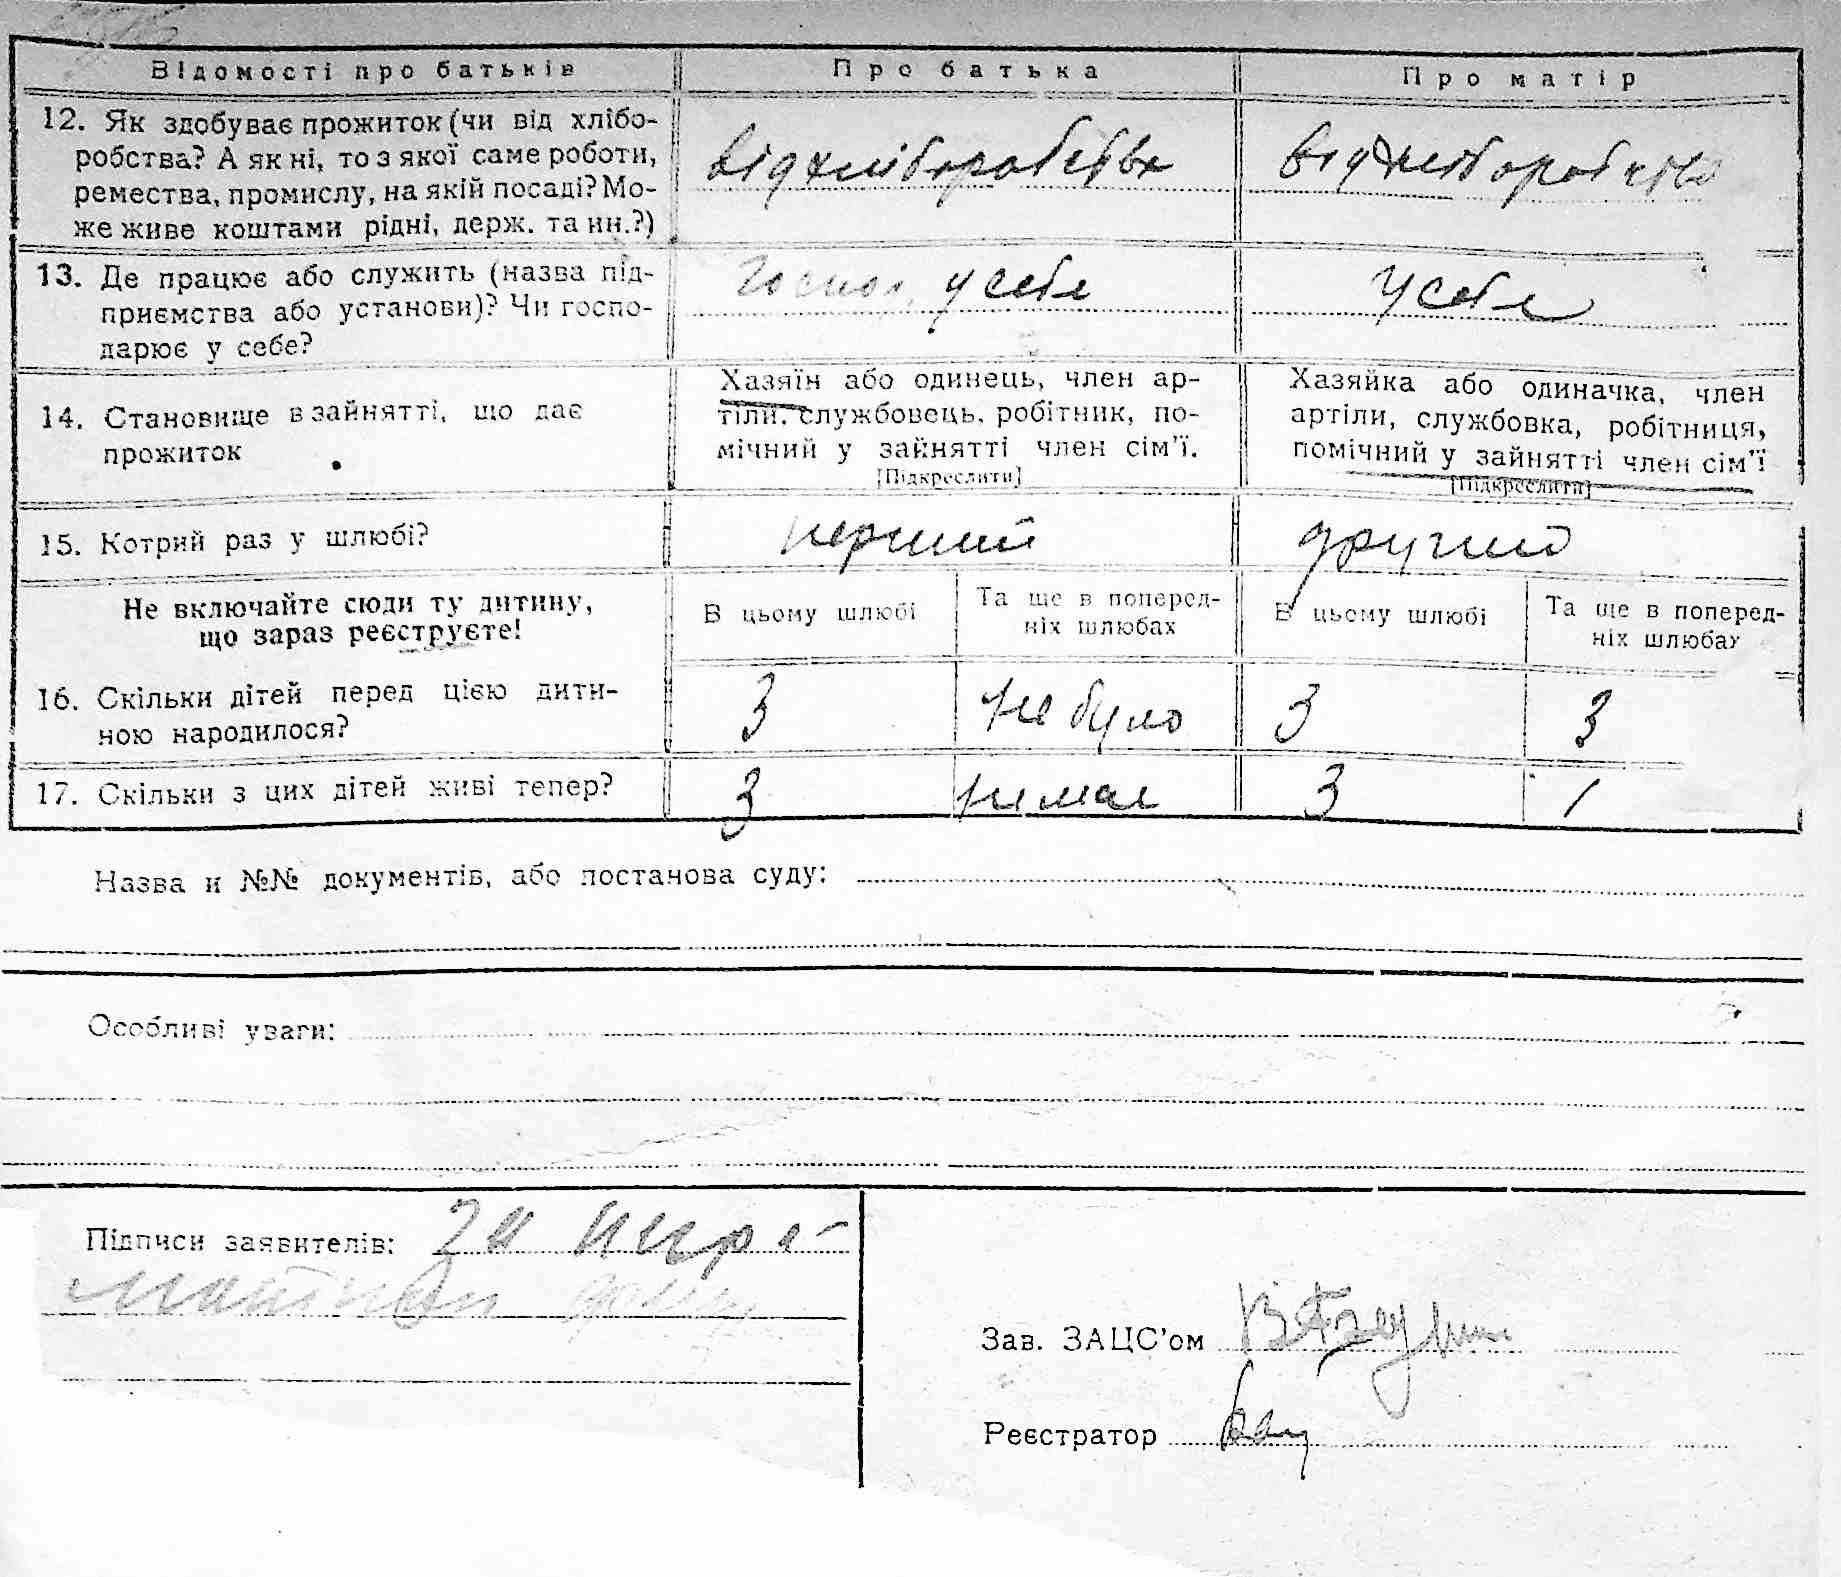 Відомості про батьків Про батька Про матір
12. Як здобуває прожиток (чи від хлібо-
робства? А як ні, то з якої саме роботи,
ремества, промислу, на якій посаді? Мо-
же живе коштами рідні, держ. та ин.?)
від хліборобства від хліборобства
13. Де працює або служить (назва під-
приємства або установи)? Чи госпо-
дарює у себе?
Госпол. у себе у себе
14. Становище в зайнятті, що дає
прожиток
Хазяїн або одинець, член ар-
тіли, службовець, робітник, по-
мічний у зайнятті член сім’ї.
[Підкреслити]
Хазяйка або одиначка, член
артіли, службовка, робітниця,
помічний у зайнятті член сім’ї
[Підкреслити]
15. Котрий раз у шлюбі? перший другий
Не включайте сюди ту дитину,
що зараз реєструєте!
В цьому шлюбі
Та ще в поперед-
ніх шлюбах
В цьому шлюбі
Та ще в поперед-
ніх шлюбах
16. Скільки дітей перед цією дити-
ною народилося?
3 не було 3 3
17. Скільки з цих дітей живі тепер? 3 немає 3 1
Назва и №№ документів, або постанова суду:
Особливі уваги:
Підписи заявителів:
Зав. ЗАЦС’ом
Реєстратор